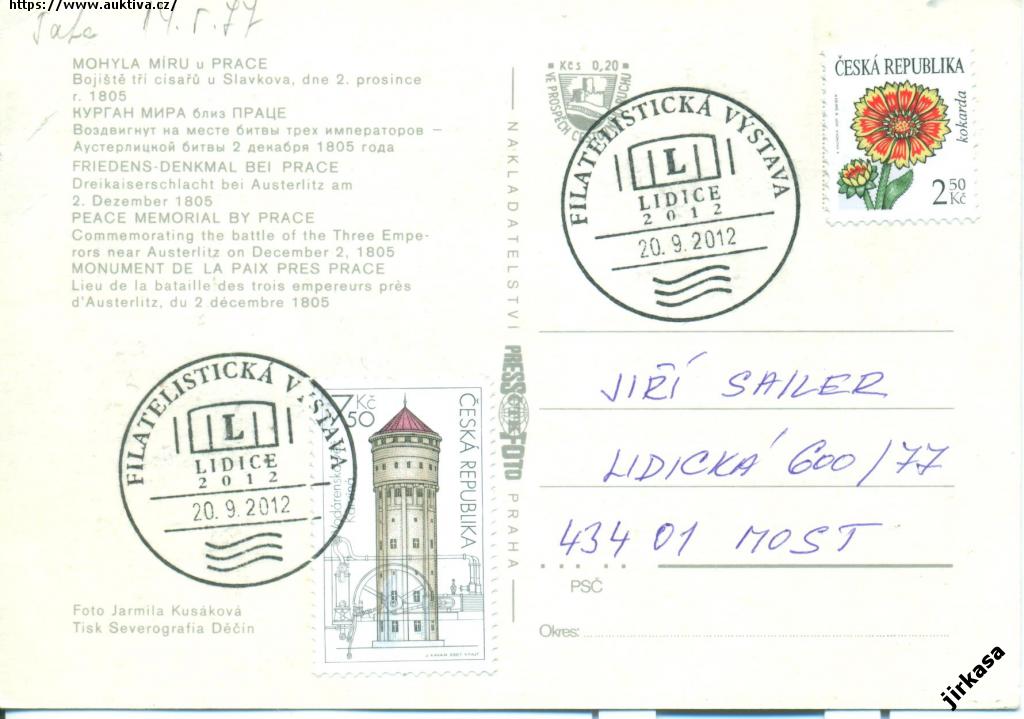 https://www.auktiva.cz/
MOHYLA MÍRU u PRACE
Bojiště tří císařů u Slavkova, dne 2. prosince
r. 1805
КУРГАН МИРА близ ПРАЦЕ
Воздвигнут на месте битвы трех императоров –
Аустерлицкой битвы 2 декабря 1805 года
FRIEDENS-DENKMAL BEI PRACE
Dreikaiserschlacht bei Austerlitz am
2. Dezember 1805
PEACE MEMORIAL BY PRACE
Commemorating the battle of the Three Empe-
rors near Austerlitz on December 2, 1805
MONUMENT DE LA PAIX PRES PRACE
Lieu de la bataille des trois empereurs près
d'Austerlitz, du 2 décembre 1805
FILATELISTICKÁ VÝSTAVA
L
LIDICE
2012
20.9.2012
7 50 Kč
ČESKÁ REPUBLIKA
Vodárenská věž
Karviná
Foto Jarmila Kusáková
Tisk Severografia Děčín
NAKLADATELSTVÍ
PRESSFOTO
PRAHA
Kčs 0,20
VE PROSPĚCH
FILATELISTICKÁ VÝSTAVA
L
LIDICE
2012
20.9.2012
ČESKÁ REPUBLIKA
kokarda
2 50 Kč
JIŘÍ SAILER
LIDICKÁ 600/77
434 01 MOST
PSČ
Okres:
jirkasa